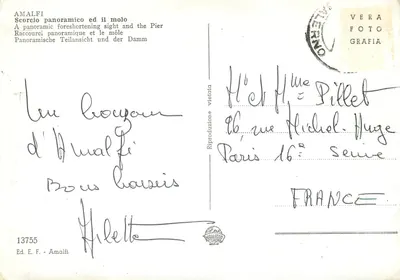 AMALFI
Scorcio panoramico ed il molo
A panoramic foreshortening sight and the Pier
Raccourci panoramique et le môle
Panoramische Teilansicht und der Damm
VERA
FOTO
GRAFIA
SALERNO
Un bonjour
d'Amalfi
Bons baisers
Arlette
Mr et Mme Pillet
26, rue Michel-Ange
Paris 16e Seine
FRANCE
Riproduzione vietata
13755
Ed. E. F. - Amalfi